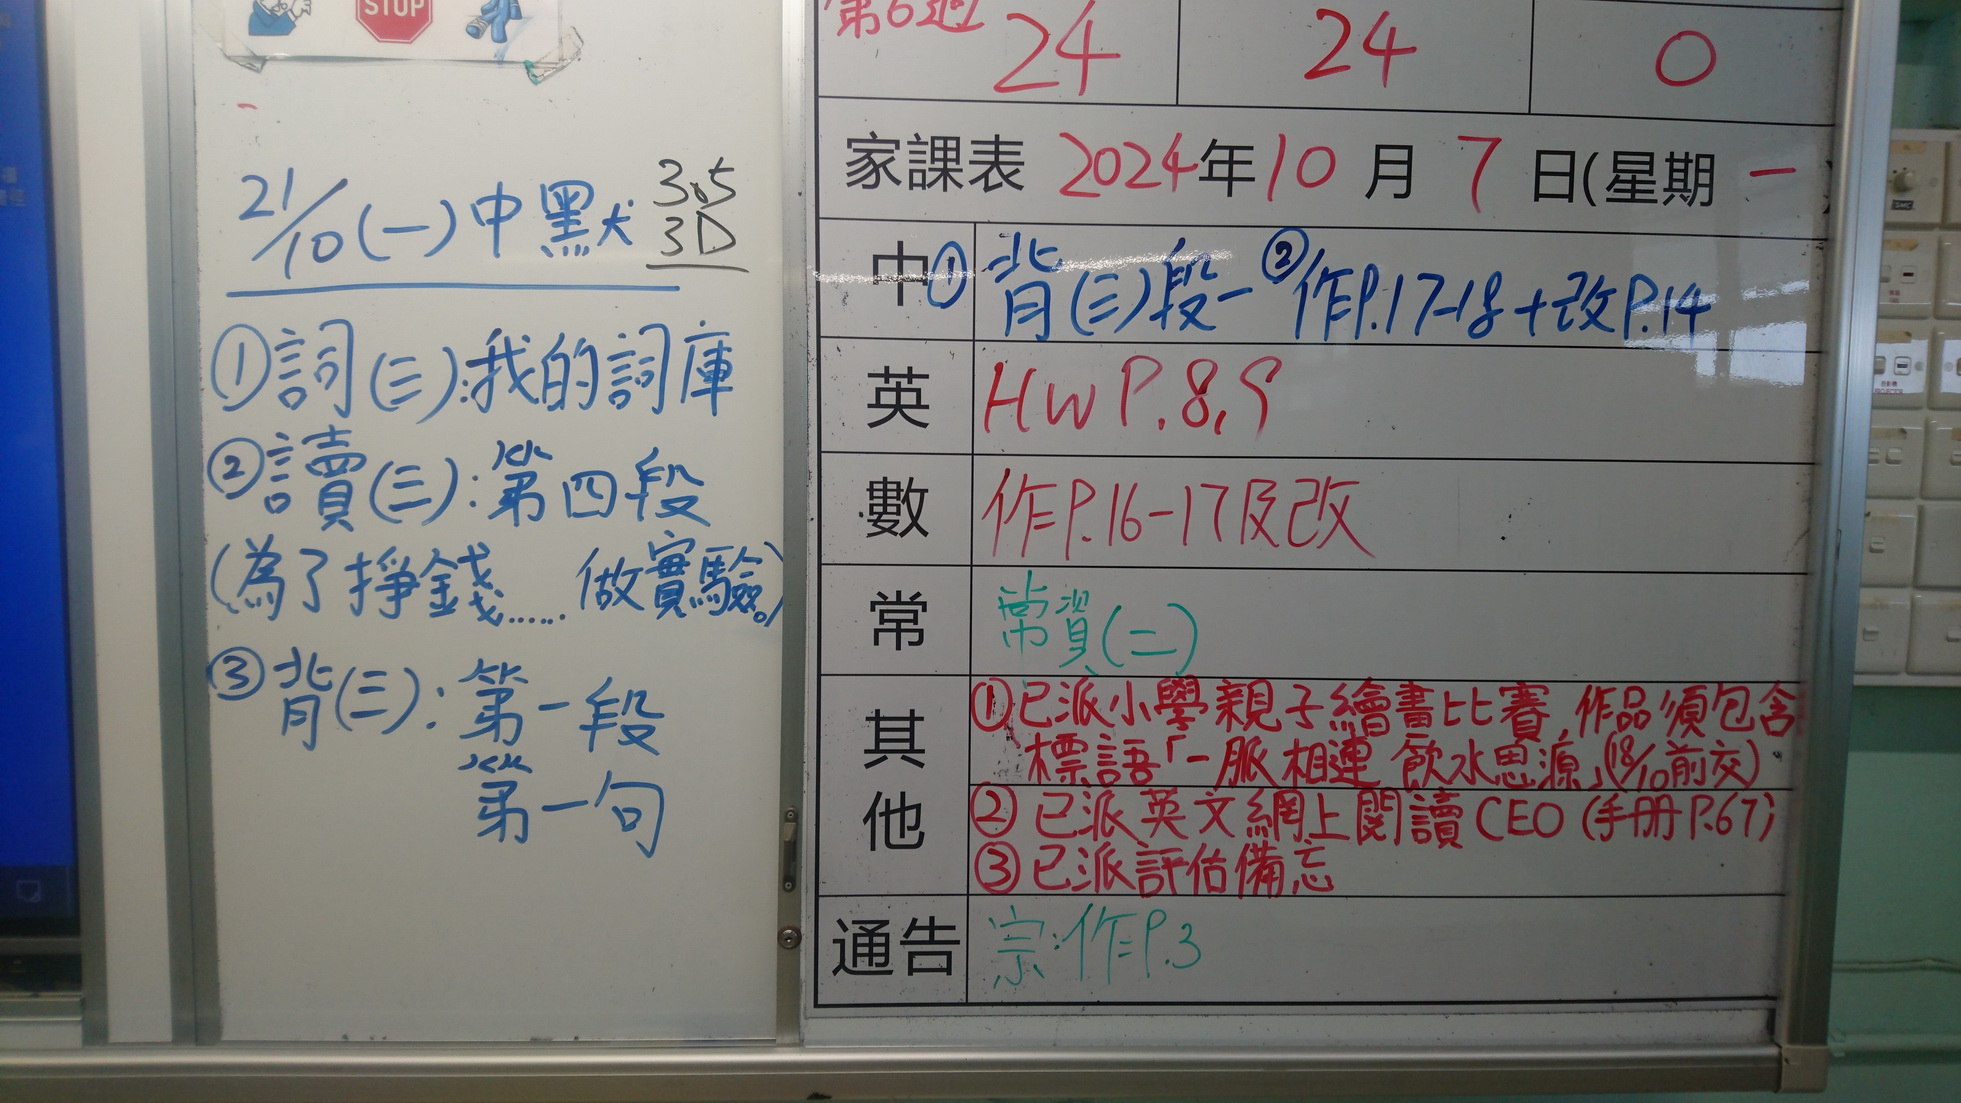 STOP
21/10(一)中默
3.5
3D
①詞(三):我的詞庫
②讀(三):第四段
(為了掙錢......做實驗。)
③背(三):第一段
第一句
第6週 24 24 0
家課表 2024年10月7日(星期一)
中 ①背(三)段一 ②作P.17-18+改P.14
英 HW P.8,9
數 作P.16-17及改
常 常資(二)
其他 ①已派小學親子繪畫比賽,作品須包含
標語「一脈相連 飲水思源」(18/10前交)
②已派英文網上閱讀CEO(手册P.67)
③已派評估備忘
通告 宗:作P.3